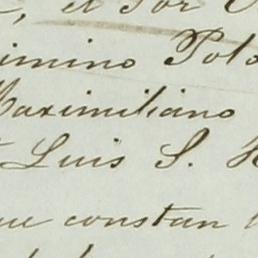 , el Sor
imino Polo
Maximiliano
Luis S.
ue constan